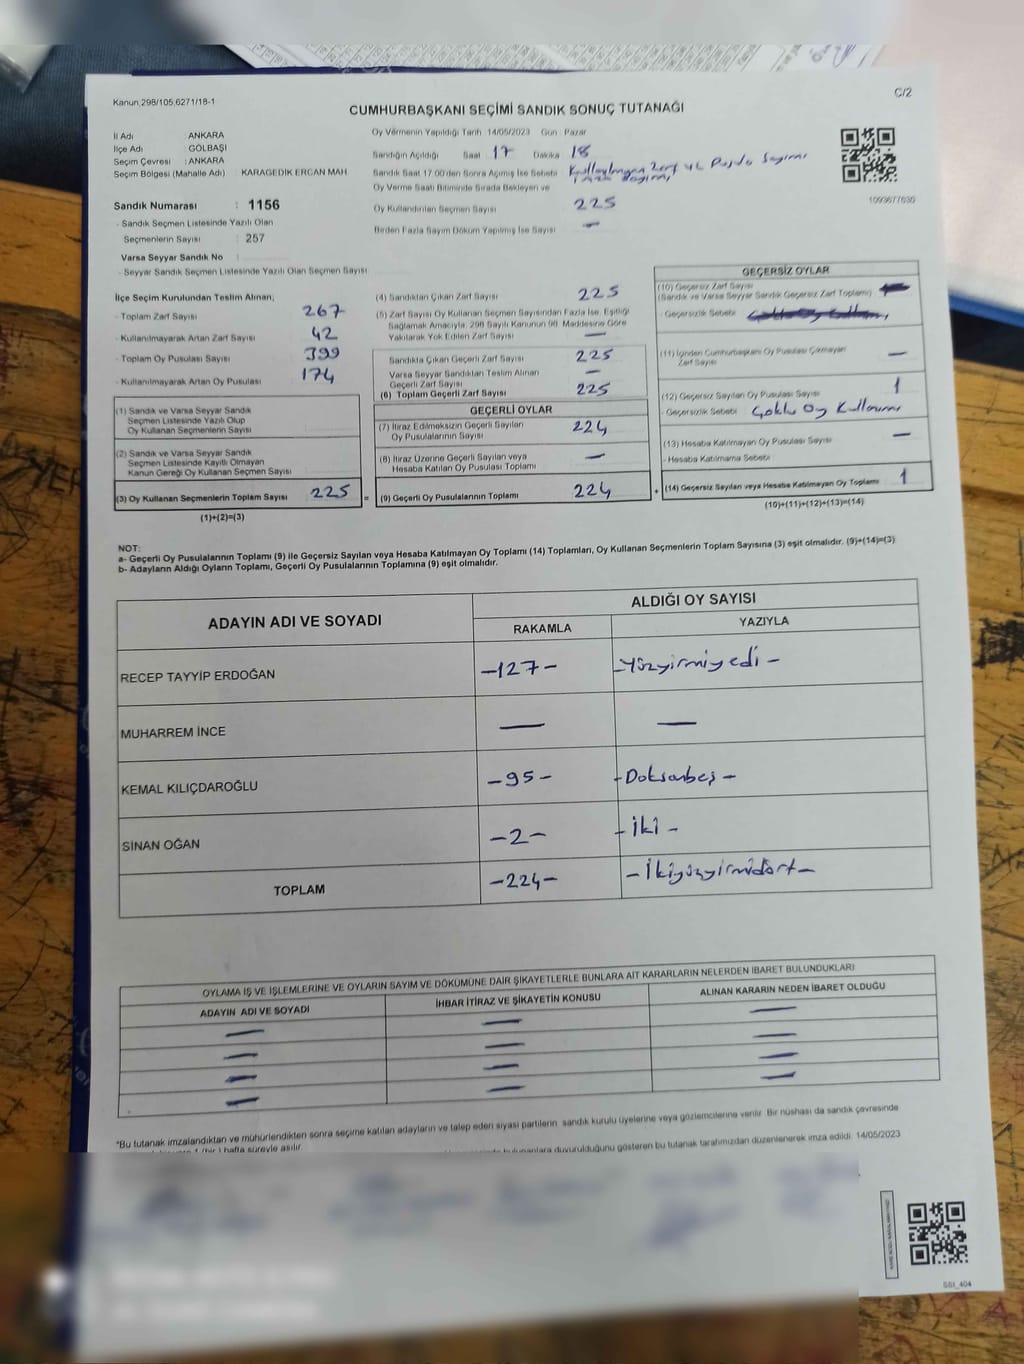 Kanun,298/105,6271/18-1
C/2
CUMHURBAŞKANI SEÇİMİ SANDIK SONUÇ TUTANAĞI
İl Adı ANKARA
İlçe Adı GÖLBAŞI
Seçim Çevresi : ANKARA
Seçim Bölgesi (Mahalle Adı) KARAGEDİK ERCAN MAH.
Oy Vermenin Yapıldığı Tarih 14/05/2023 Gün : Pazar
Sandığın Açıldığı Saat 17 Dakika 18
Sandık Saat 17.00'den Sonra Açılmış İse Sebebi
Oy Verme Saati Bitiminde Sırada Bekleyen ve
Oy Kullandırılan Seçmen Sayısı 225
Birden Fazla Sayım Döküm Yapılmış İse Sayısı —
1093677630
Sandık Numarası : 1156
- Sandık Seçmen Listesinde Yazılı Olan
Seçmenlerin Sayısı : 257
Varsa Seyyar Sandık No :
- Seyyar Sandık Seçmen Listesinde Yazılı Olan Seçmen Sayısı
İlçe Seçim Kurulundan Teslim Alınan;
- Toplam Zarf Sayısı 267
- Kullanılmayarak Artan Zarf Sayısı 42
- Toplam Oy Pusulası Sayısı 399
- Kullanılmayarak Artan Oy Pusulası 174
(1) Sandık ve Varsa Seyyar Sandık
Seçmen Listesinde Yazılı Olup
Oy Kullanan Seçmenlerin Sayısı
(2) Sandık ve Varsa Seyyar Sandık
Seçmen Listesinde Kayıtlı Olmayan
Kanun Gereği Oy Kullanan Seçmen Sayısı
(3) Oy Kullanan Seçmenlerin Toplam Sayısı 225 =
(1)+(2)=(3)
(4) Sandıktan Çıkan Zarf Sayısı 225
(5) Zarf Sayısı Oy Kullanan Seçmen Sayısından Fazla İse, Eşitliği
Sağlamak Amacıyla, 298 Sayılı Kanunun 98. Maddesine Göre
Yakılarak Yok Edilen Zarf Sayısı —
Sandıkta Çıkan Geçerli Zarf Sayısı 225
Varsa Seyyar Sandıktan Teslim Alınan
Geçerli Zarf Sayısı —
(6) Toplam Geçerli Zarf Sayısı 225
GEÇERLİ OYLAR
(7) İtiraz Edilmeksizin Geçerli Sayılan
Oy Pusulalarının Sayısı 224
(8) İtiraz Üzerine Geçerli Sayılan veya
Hesaba Katılan Oy Pusulası Toplamı —
(9) Geçerli Oy Pusulalarının Toplamı 224 +
GEÇERSİZ OYLAR
(10) Geçersiz Zarf Sayısı
(Sandık ve Varsa Seyyar Sandık Geçersiz Zarf Toplamı)
- Geçersizlik Sebebi
(11) İçinden Cumhurbaşkanı Oy Pusulası Çıkmayan
Zarf Sayısı —
(12) Geçersiz Sayılan Oy Pusulası Sayısı 1
- Geçersizlik Sebebi Çoklu Oy Kullanımı
(13) Hesaba Katılmayan Oy Pusulası Sayısı —
- Hesaba Katılmama Sebebi
(14) Geçersiz Sayılan veya Hesaba Katılmayan Oy Toplamı 1
(10)+(11)+(12)+(13)=(14)
NOT:
a- Geçerli Oy Pusulalarının Toplamı (9) ile Geçersiz Sayılan veya Hesaba Katılmayan Oy Toplamı (14) Toplamları, Oy Kullanan Seçmenlerin Toplam Sayısına (3) eşit olmalıdır. (9)+(14)=(3)
b- Adayların Aldığı Oyların Toplamı, Geçerli Oy Pusulalarının Toplamına (9) eşit olmalıdır.
ADAYIN ADI VE SOYADI ALDIĞI OY SAYISI
RAKAMLA YAZIYLA
RECEP TAYYİP ERDOĞAN -127- -Yüzyirmiyedi-
MUHARREM İNCE — —
KEMAL KILIÇDAROĞLU -95- -Doksanbeş-
SİNAN OĞAN -2- -İki-
TOPLAM -224- -İkiyüzyirmidört-
OYLAMA İŞ VE İŞLEMLERİNE VE OYLARIN SAYIM VE DÖKÜMÜNE DAİR ŞİKAYETLERLE BUNLARA AİT KARARLARIN NELERDEN İBARET BULUNDUKLARI
ADAYIN ADI VE SOYADI İHBAR İTİRAZ VE ŞİKAYETİN KONUSU ALINAN KARARIN NEDEN İBARET OLDUĞU
— — —
— — —
— — —
— — —
*Bu tutanak imzalandıktan ve mühürlendikten sonra seçime katılan adayların ve talep eden siyasi partilerin sandık kurulu üyelerine veya gözlemcilerine verilir. Bir nüshası da sandık çevresinde
1 (bir) hafta süreyle asılır.
duyurulduğunu gösteren bu tutanak tarafımızdan düzenlenerek imza edildi. 14/05/2023
SSI_404